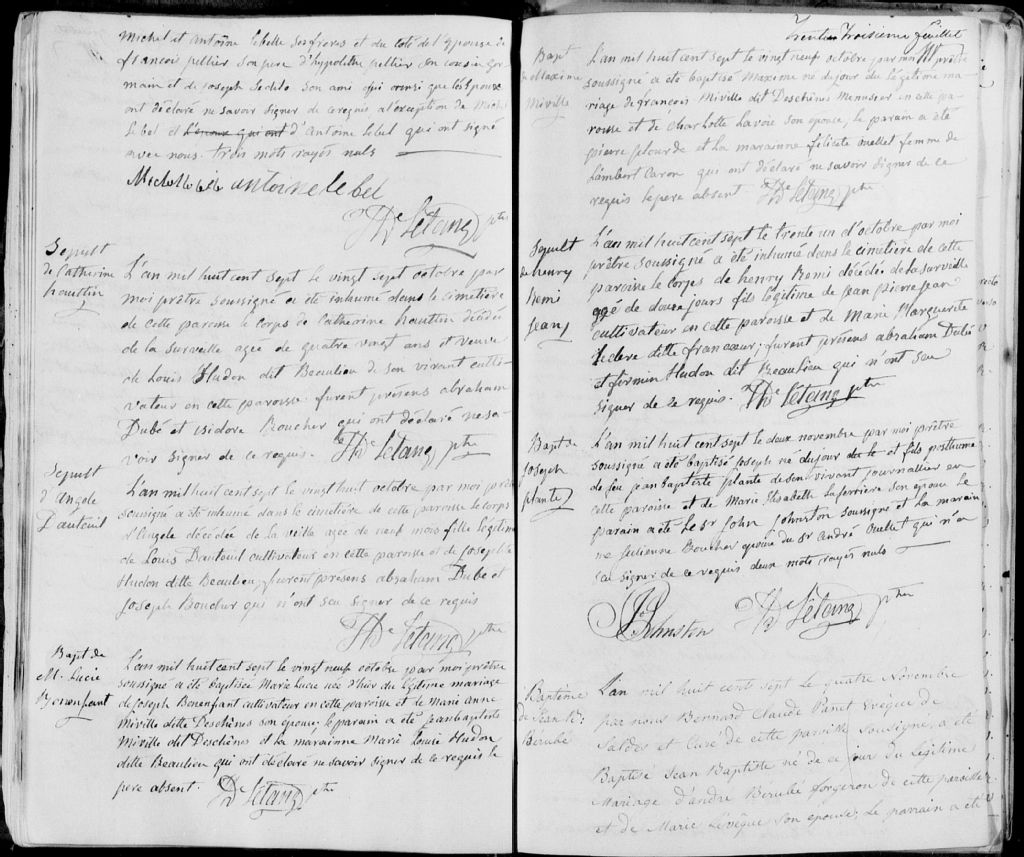 Michel et Antoine lebelle ses freres et du coté de l'epouse de
francois pellier son pere d'hypolithe pellier son cousin ger-
main et de joseph son ami qui ainsi que l'epouse
ont déclaré ne savoir signer de ce requis a l'exception de Michel
lebel et l'epoux qui ont d'Antoine lebel qui ont signé
avec nous. trois mots rayés nuls
Michel lebele antoine lebel
Thd Létang ptre
Sepult
de Catherine
hauttin
L'an mil huit cent sept le vingt sept octobre par
moi prêtre soussigné a été inhumé dans le cimetière
de cette paroisse le corps de Catherine hauttin décédée
de la surveille agée de quatre vingt ans et veuve
de Louis Hudon dit Beaulieu de son vivant culti-
vateur en cette paroisse. furent présens abraham
Dubé et isidore Boucher qui ont déclaré ne sa-
voir signer de ce requis. Thde Létang ptre
Sepult
d'Angele
Dauteuil
L'an mil huit cent sept le vingt huit octobre par moi prê
soussigné a été inhumé dans le cimetière de cette paroisse le corps
d'Angele décédée de la veille agée de neuf mois fille legitime
de Louis Dauteuil cultivateur en cette paroisse et de josephte
Hudon ditte Beaulieu, furent présens abraham Dubé et
joseph Boucher qui n'ont seu signer de ce requis
Thde Létang ptre
Bapt de
M. Lucie
Bonenfant
L'an mil huit cent sept le vingt neuf octobre par moi prêtre
soussigné a été baptisée Marie Lucie née d'hier du légitime mariage
de joseph Bonenfant cultivateur en cette paroisse et de Marie anne
Miville ditte Deschênes son épouse; le parain a été jean baptiste
Miville dit Deschênes et la marainne Marie Louise Hudon
ditte Beaulieu qui ont déclaré ne savoir signer de ce requis le
pere absent. Thde Létang ptre
Trente Troisieme feuillet
Bapt
de Maxime
Miville
L'an mil huit cent sept le vingt neuf octobre par moi prêtre
soussigné a été baptisé Maxime né du jour du légitime ma-
riage de francois Miville dit Deschênes Menuisier en cette pa-
roisse et de Charlotte Lavoie son epouse, le parain a été
pierre plourde et La marainne félicité ouellet femme de
Lambert Caron qui ont déclaré ne savoir signer de ce
requis le pere absent Thde Létang ptre
Sepult
de henry
Remi
Jean
L'an mil huit cent sept le trente un d'octobre par moi
prêtre soussigné a été inhumé dans le cimetière de cette
paroisse le corps de henry Remi décédé de la surveille
agé de douze jours fils légitime de Jean pierre Jean
cultivateur en cette paroisse et de Marie Marguerite
Leclerc ditte francoeur; furent présens abraham Dubé
et firmin Hudon dit Beaulieu qui n'ont seu
signer de ce requis. Thde Létang ptre
Bapt de
joseph
plante
L'an mil huit cent sept le deux novembre par moi prêtre
soussigné a été baptisé joseph né du jour et fils posthume
de feu jean baptiste plante de son vivant journallier en
cette paroisse et de Marie Elisabeth Laferrière son epouse Le
parain a été Le Sr John Johnston soussigné et la marain
ne julienne Boucher epouse du Sr andré Ouellet qui n'a
seu signer de ce requis deux mots rayés nuls
J Johnston Thde Létang ptre
Baptême
de Jean B:
Bérubé
L'an mil huit cents sept le quatre Novembre
par nous Bernard Claude Panet Evêque de
Saldes et Curé de cette paroisse soussigné, a été
Baptisé Jean Baptiste né de ce jour du Légitime
Mariage d'andré Bérubé forgeron de cette paroisse
et de Marie Lévêque son epouse; Le parrain a été
recto
verso